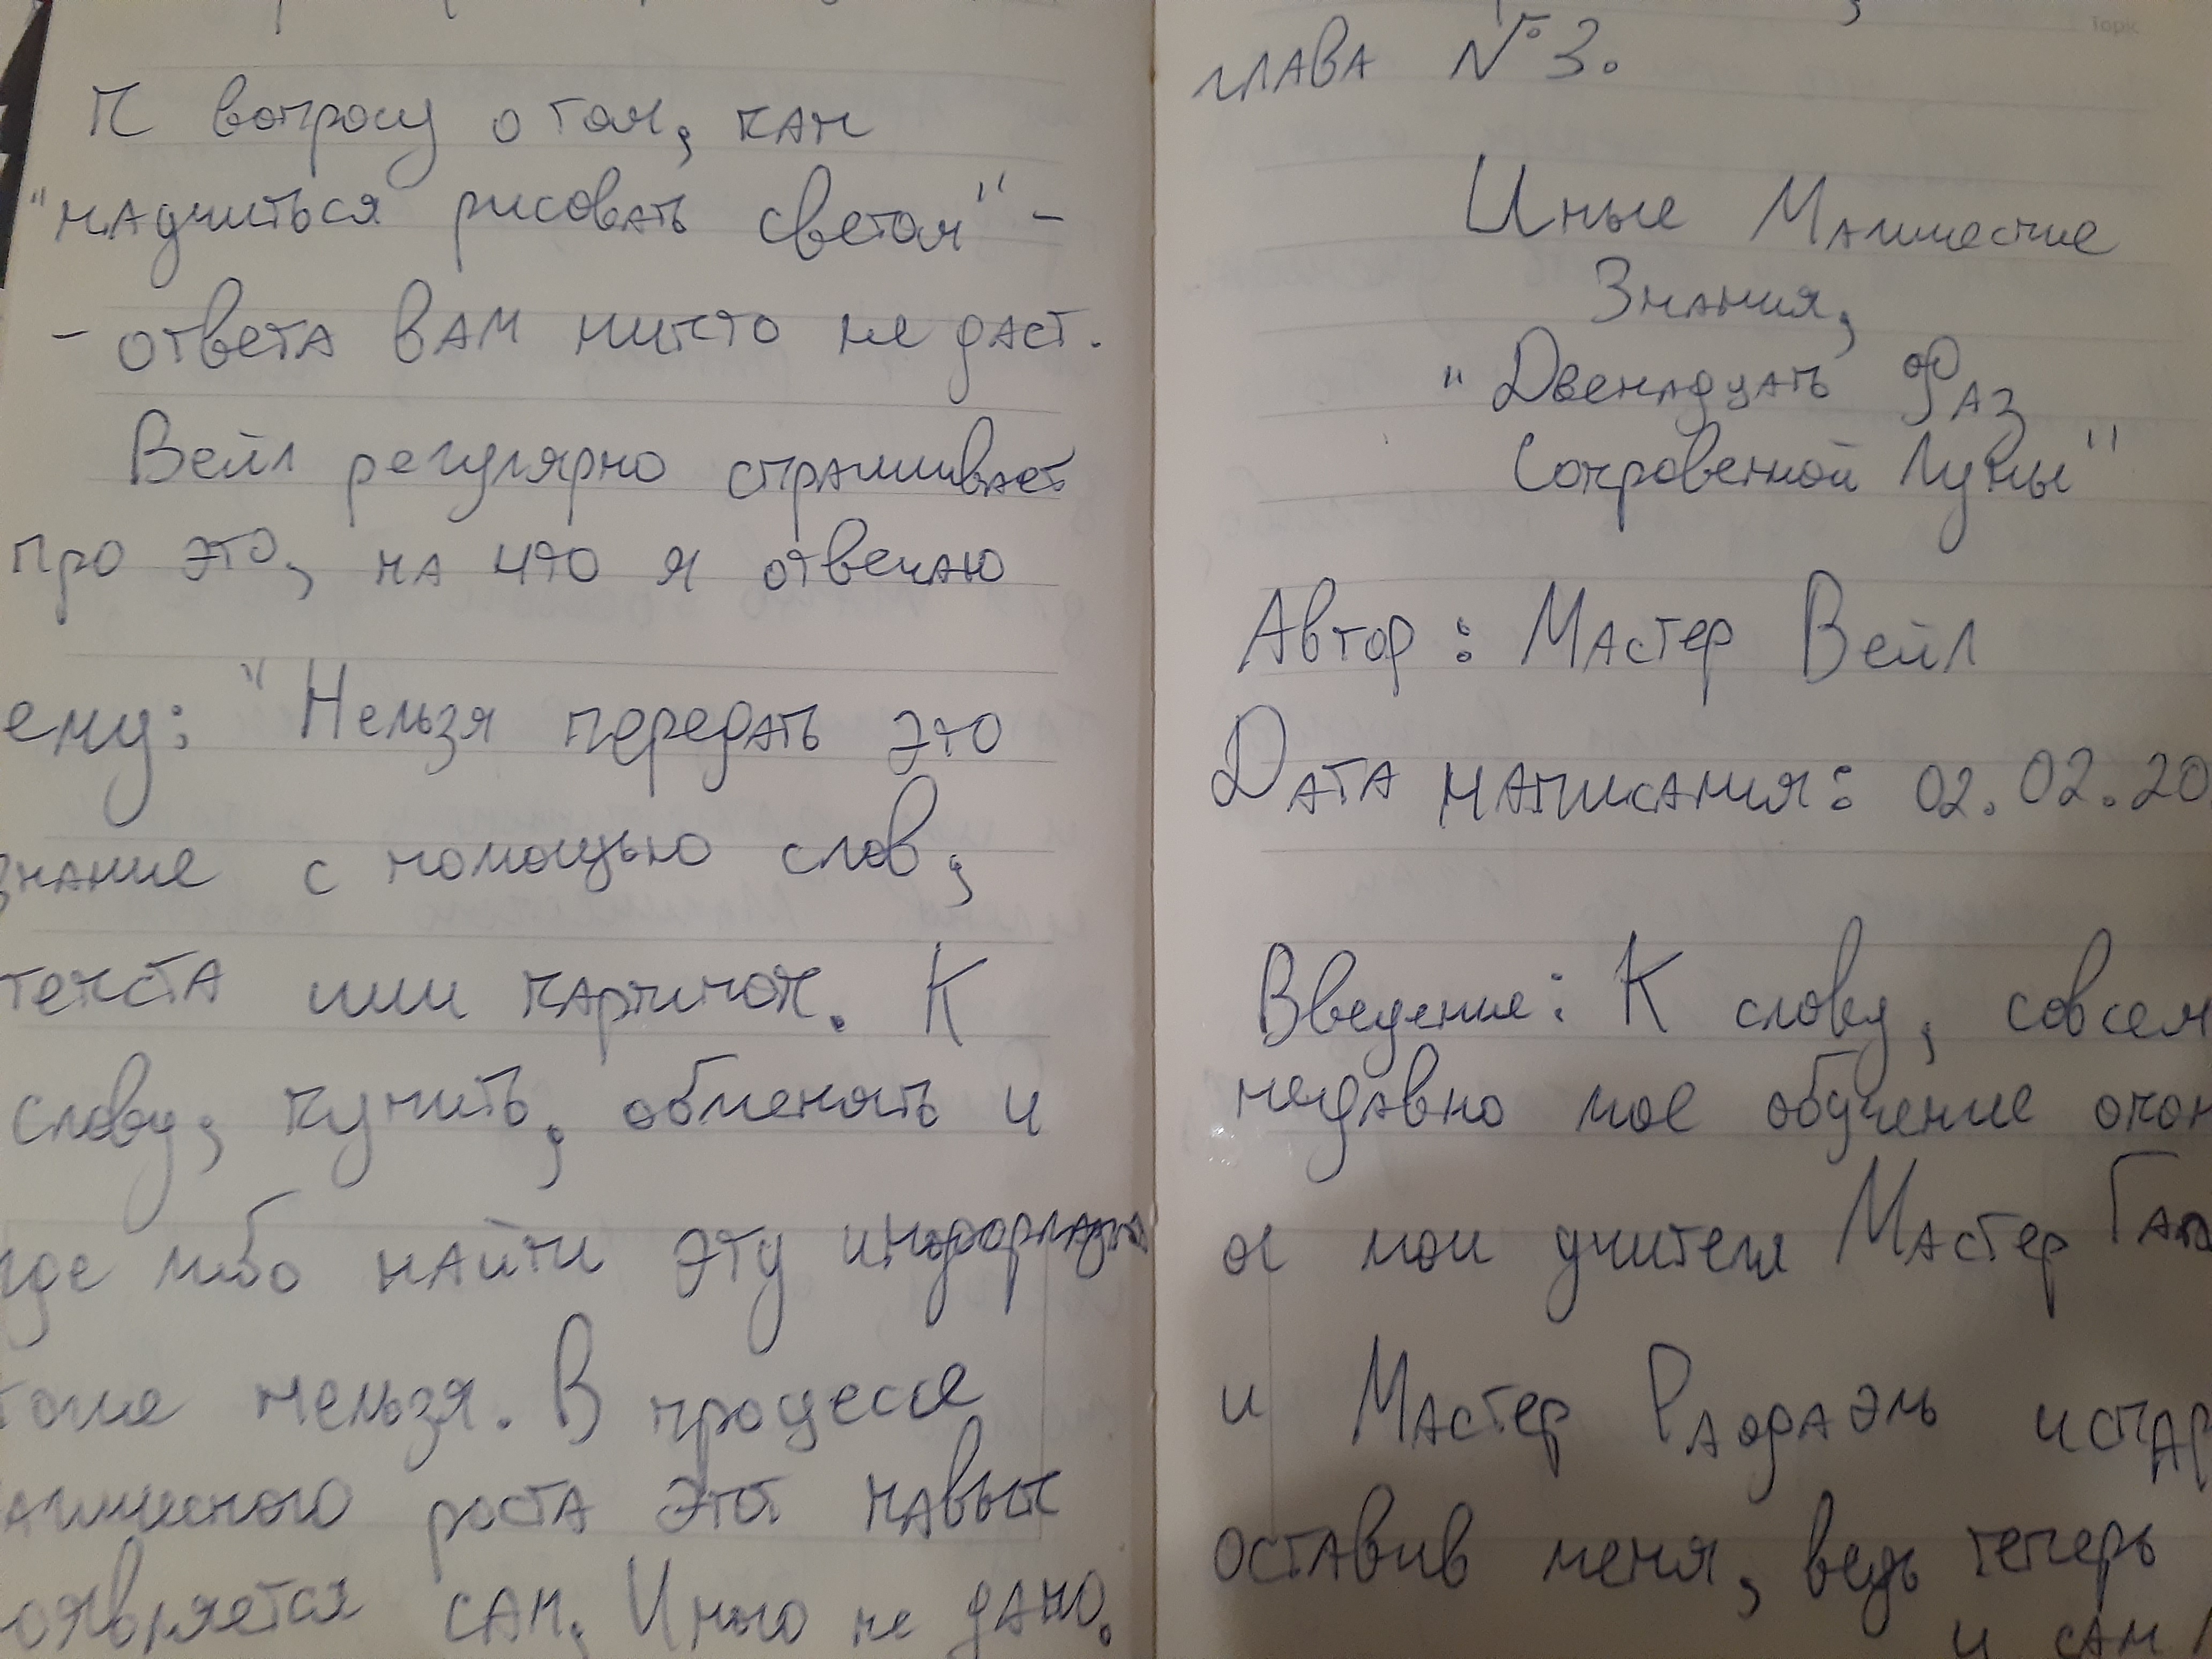 К вопросу о том, как
"научиться рисовать светом" -
- ответа вам никто не даст.
Вейл регулярно спрашивает
про это, на что я отвечаю
ему: "Нельзя передать это
знание с помощью слов,
текста или картинок. К
слову, купить, обменять и
где либо найти эту информацию
тоже нельзя. В процессе
агического роста этот навык
оявляется сам. Иного не дано.
Topic
глава №3.
Иные Магические
Знания,
"Двенадцать Фаз
Сокровенной Луны"
Автор: Мастер Вейл
Дата написания: 02.02.20
Введение: К слову, совсем
недавно мое обучение окон
ос мои учителя Мастер
и Мастер Рафаэль испар
оставив меня, ведь теперь
и сам